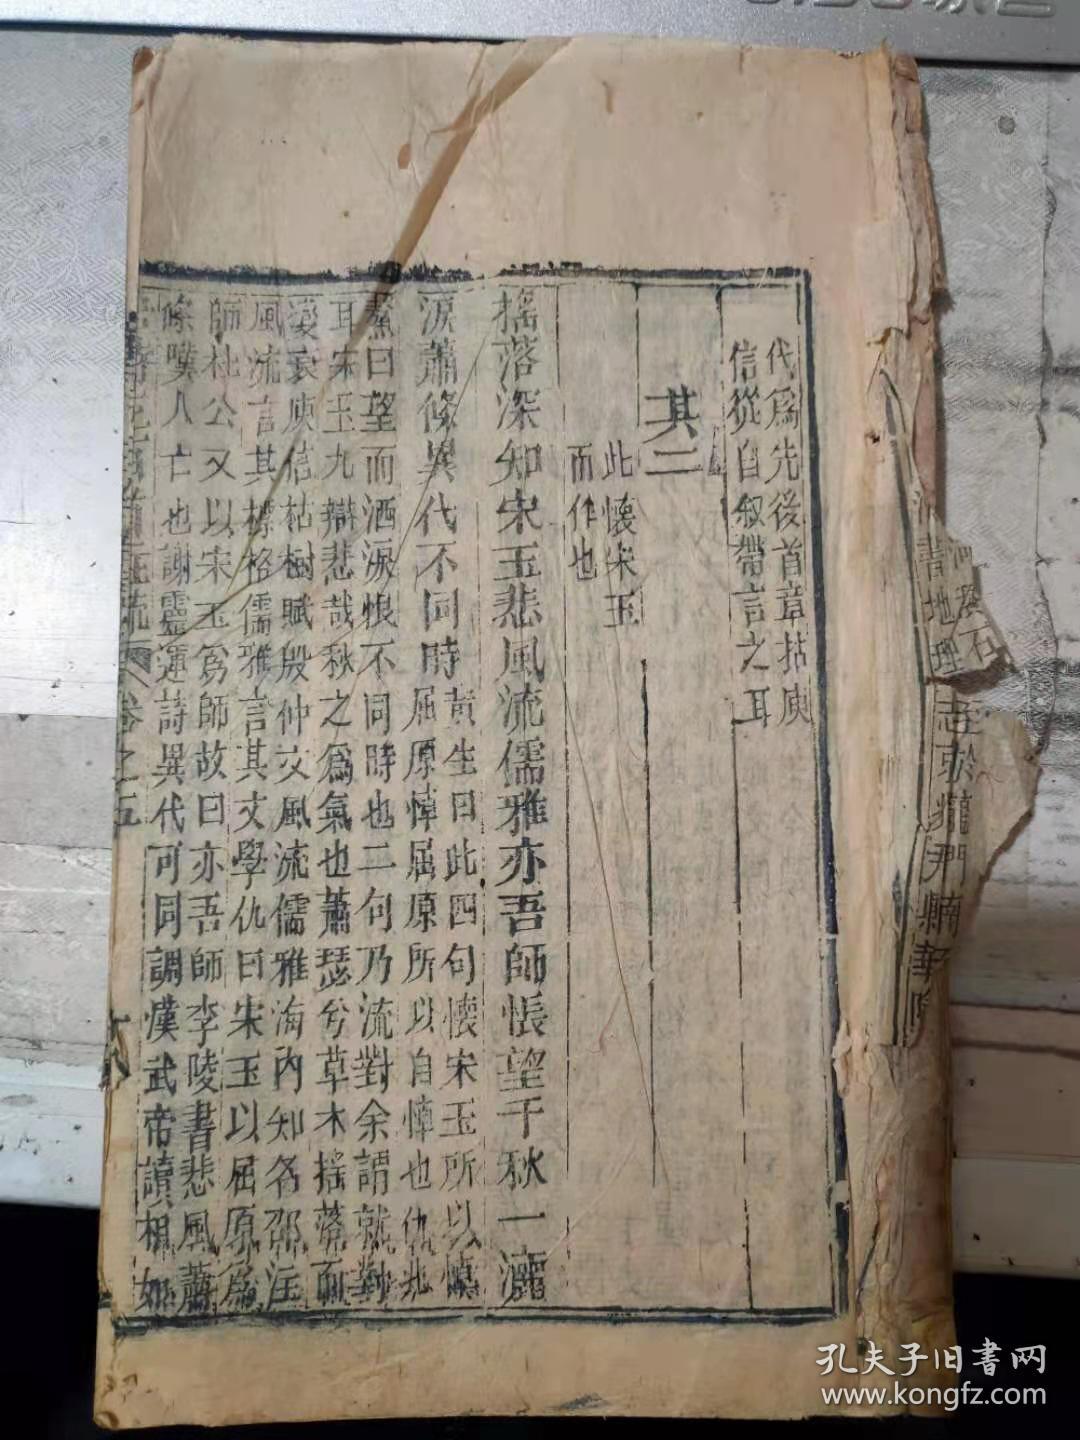 代爲先後首章拈庾
信從自叙帶言之耳
其二
此懷宋玉
而作也
搖落深知宋玉悲風流儒雅亦吾師悵望千秋一灑
淚蕭條異代不同時
黃生曰此四句懷宋玉所以悼
屈原悼屈原所以自悼也仇兆
鰲曰望而洒淚恨不同時也二句乃流對余謂就對
耳宋玉九辯悲哉秋之爲氣也蕭瑟兮草木搖落而
變衰庾信枯樹賦殷仲文風流儒雅海内知名邵注
風流言其標格儒雅言其文學仇曰宋玉以屈原爲
師杜公又以宋玉爲師故曰亦吾師李陵書悲風蕭
條嘆人亡也謝靈運詩異代可同調漢武帝讀相如
卷之五
書地理
志
縣
華陰
孔夫子旧書网
www.kongfz.com